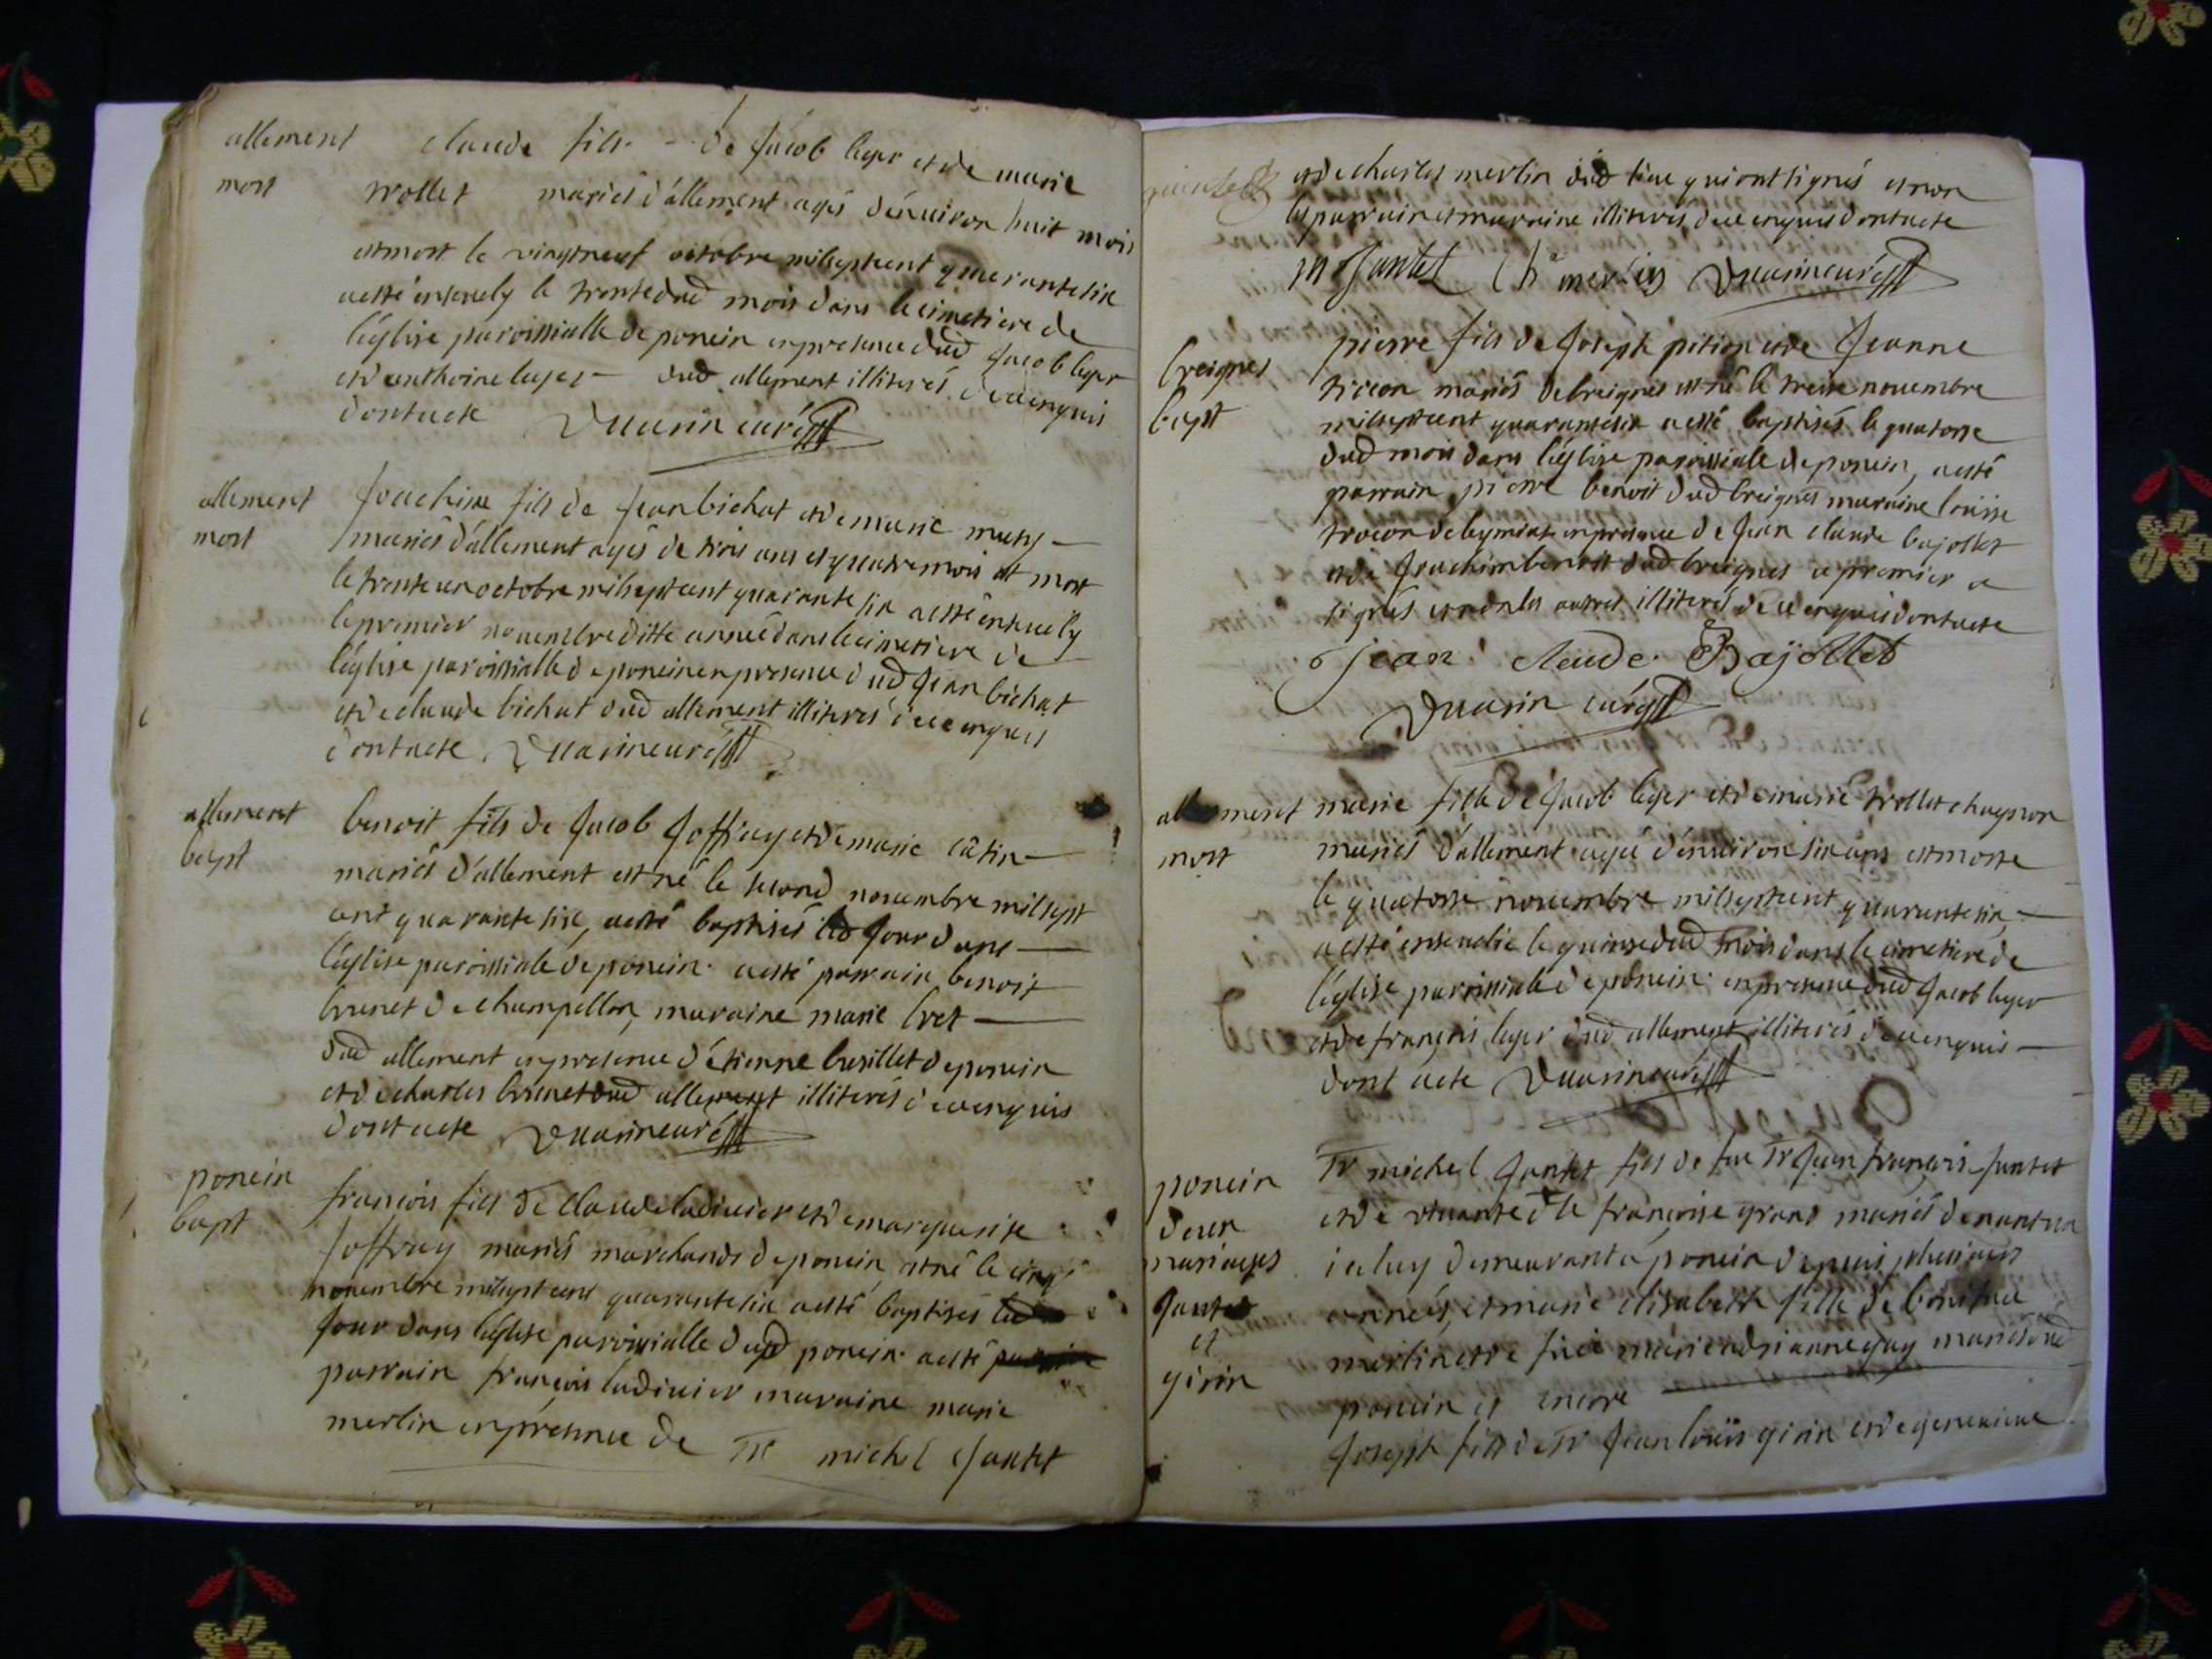 allement claude fils de Jacob leger et de marie
mort trollet mariés d'allement agés d'environ huit mois
est mort le vingtneuf octobre milseptcent quarantesix
aesté ensevely le trente dud mois dans le cimetiere de
l'église paroissialle de poncin en presence dud Jacob leger
et d'anthoine leger dud allement illiterés de ce enquis
dont acte Duarin curé
allement Joachim fils de Jean bichat et de marie
mort mariés d'allement agés de trois ans et quatre mois est mort
le trente un octobre milseptcent quarante six aesté ensevely
le premier novembre ditte année dans le cimetiere de
l'église paroissialle de poncin en presence dud Jean bichat
et de claude bichat dud allement illiterés de ce enquis
dont acte Duarin curé
allement benoit fils de Jacob Joffray et de marie catin
bapt mariés d'allement est né le second novembre milsept
cent quarante six, aesté baptisés led Jour dans
l'église paroissiale de poncin aesté parrain benoit
brunet de champollon, maraine marie bret
dud allement en presence d'étienne busillet de poncin
et de charles brunet dud allement illiterés de ce enquis
dont acte Duarin curé
poncin francois fils de claude ladivier et de marguerite
bapt Joffray mariés marchands de poncin, est né le cinq
novembre milseptcent quarantesix aesté baptisés led
Jour dans l'église paroissialle dud poncin aesté
parrain françois ladivier maraine marie
merlin en présence de Sr michel Jantet
et de charles merlin dud lieu qui ont signés et non
les parrain et maraine illiterés de ce enquis dont acte
m Jantet Ch merlin Duarin curé
breignes pierre fils de Joseph pition et de Jeanne
bapt trocon mariés de breignes est né le treise novembre
milseptcent quarantesix aesté baptisés le quatorse
dud mois dans l'église paroissiale de poncin, aesté
parrain pierre benoit dud breignes maraine louise
trocon de leymiat en presence de Jean claude bajollet
et de Joachim benoit dud breignes ce premier a
signés et non les autres illiterés de ce enquis dont acte
jean claude Bajollet
Duarin curé
allement marie fille de Jacob leger et de marie trollet chagnon
mort mariés d'allement agée d'environ six ans est morte
le quatorse novembre milseptcent quarantesix,
aesté ensevelie le quinse dud mois dans le cimetiere de
l'église paroissiale de poncin en presence dud Jacob leger
et de françois leger dud allement illiterés de ce enquis
dont acte Duarin curé
poncin Sr michel Jantet fils de feu Sr Jean françois Jantet
deux et de vivante dlle françoise grand mariés de nantua
mariages iceluy demeurant a poncin depuis plusieurs
Jantet années, et marie elisabeth fille de boniface
et merlin et de feüe marie adrianne guy mariés dud
girin poncin et encore
Joseph fils de Sr Jean louis girin et de genevieve